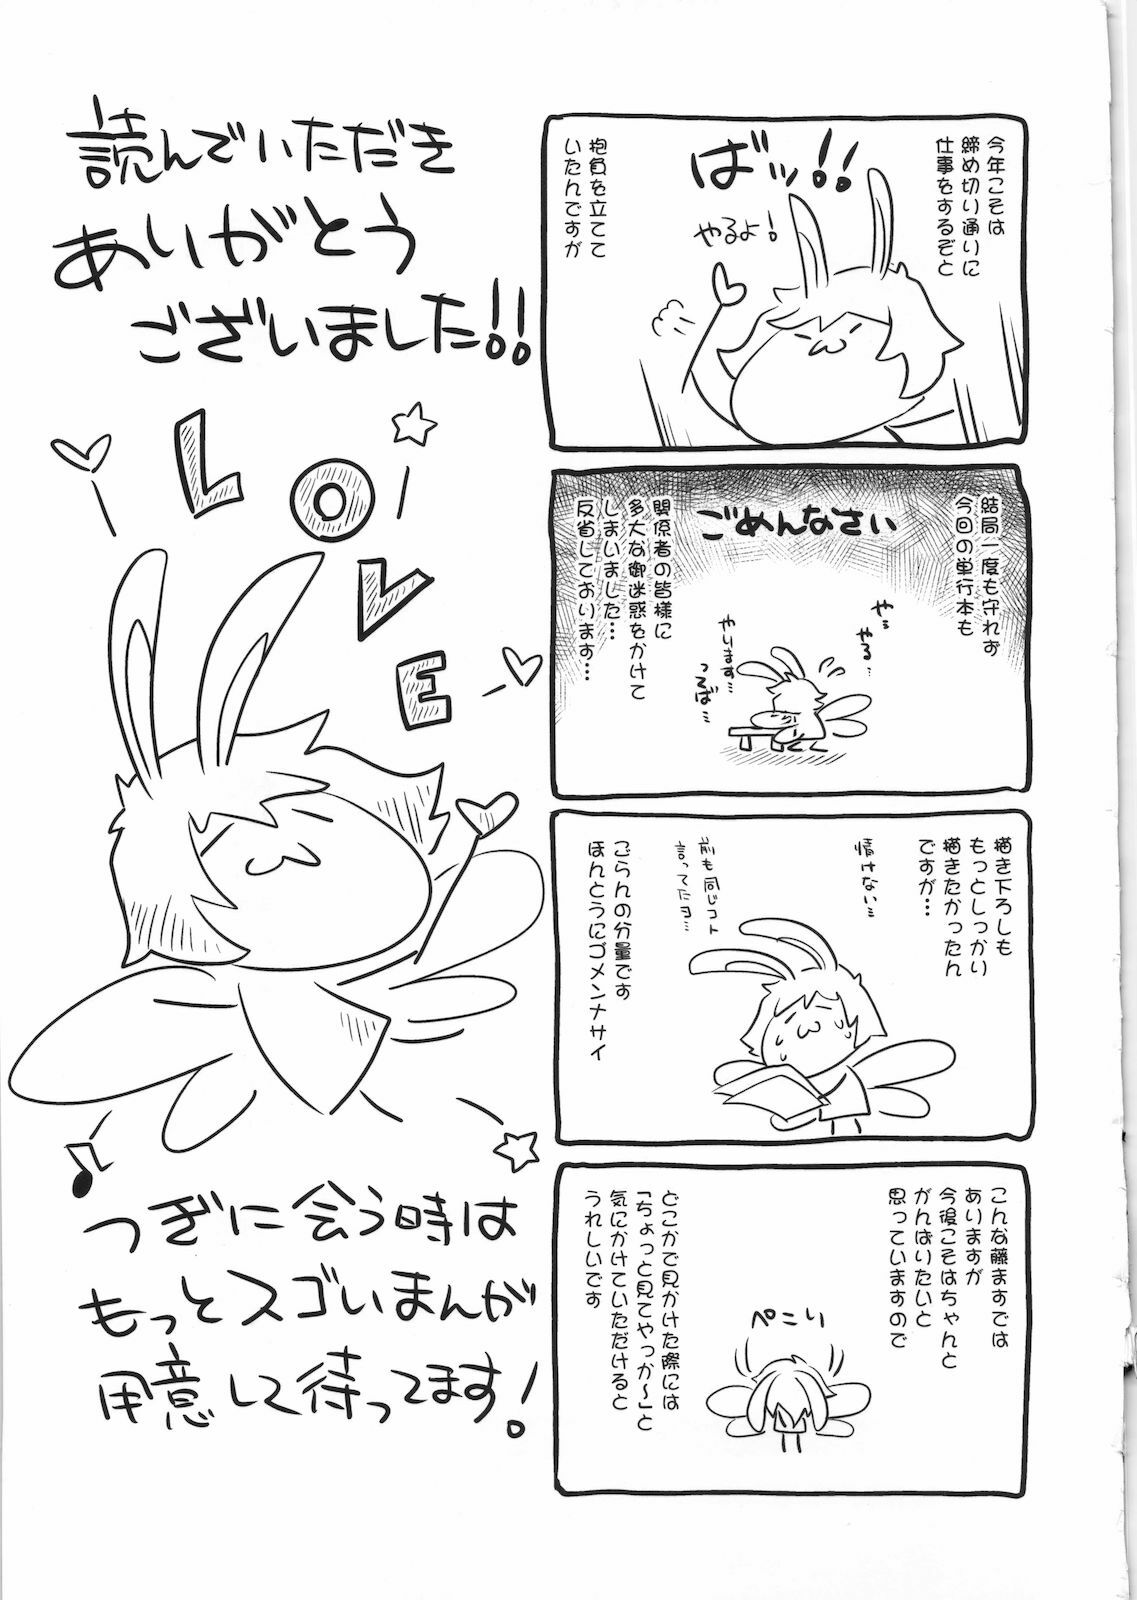 今年こそは
締め切り通りに
仕事をするぞと
ばッ!!
やるよ!
抱負を立てて
いたんですが
結局一度も守れず
今回の単行本も
ごめんなさい
やっ
やる…
やります…
つるば…
関係者の皆様に
多大な御迷惑をかけて
しまいました…
反省しております…
描き下ろしも
もっとしっかり
描きたかったん
ですが…
情けない…
前も同じコト
言ってたヨ…
ごらんの分量です
ほんとうにゴメンナサイ
こんな藤ますでは
ありますが
今後こそはちゃんと
がんばりたいと
思っていますので
ぺこり
どこかで見かけた際には
「ちょっと見てやっか〜」と
気にかけていただけると
うれしいです
読んでいただき
ありがとう
ございました!!
LOVE
つぎに会う時は
もっとスゴいまんが
用意して待ってます!